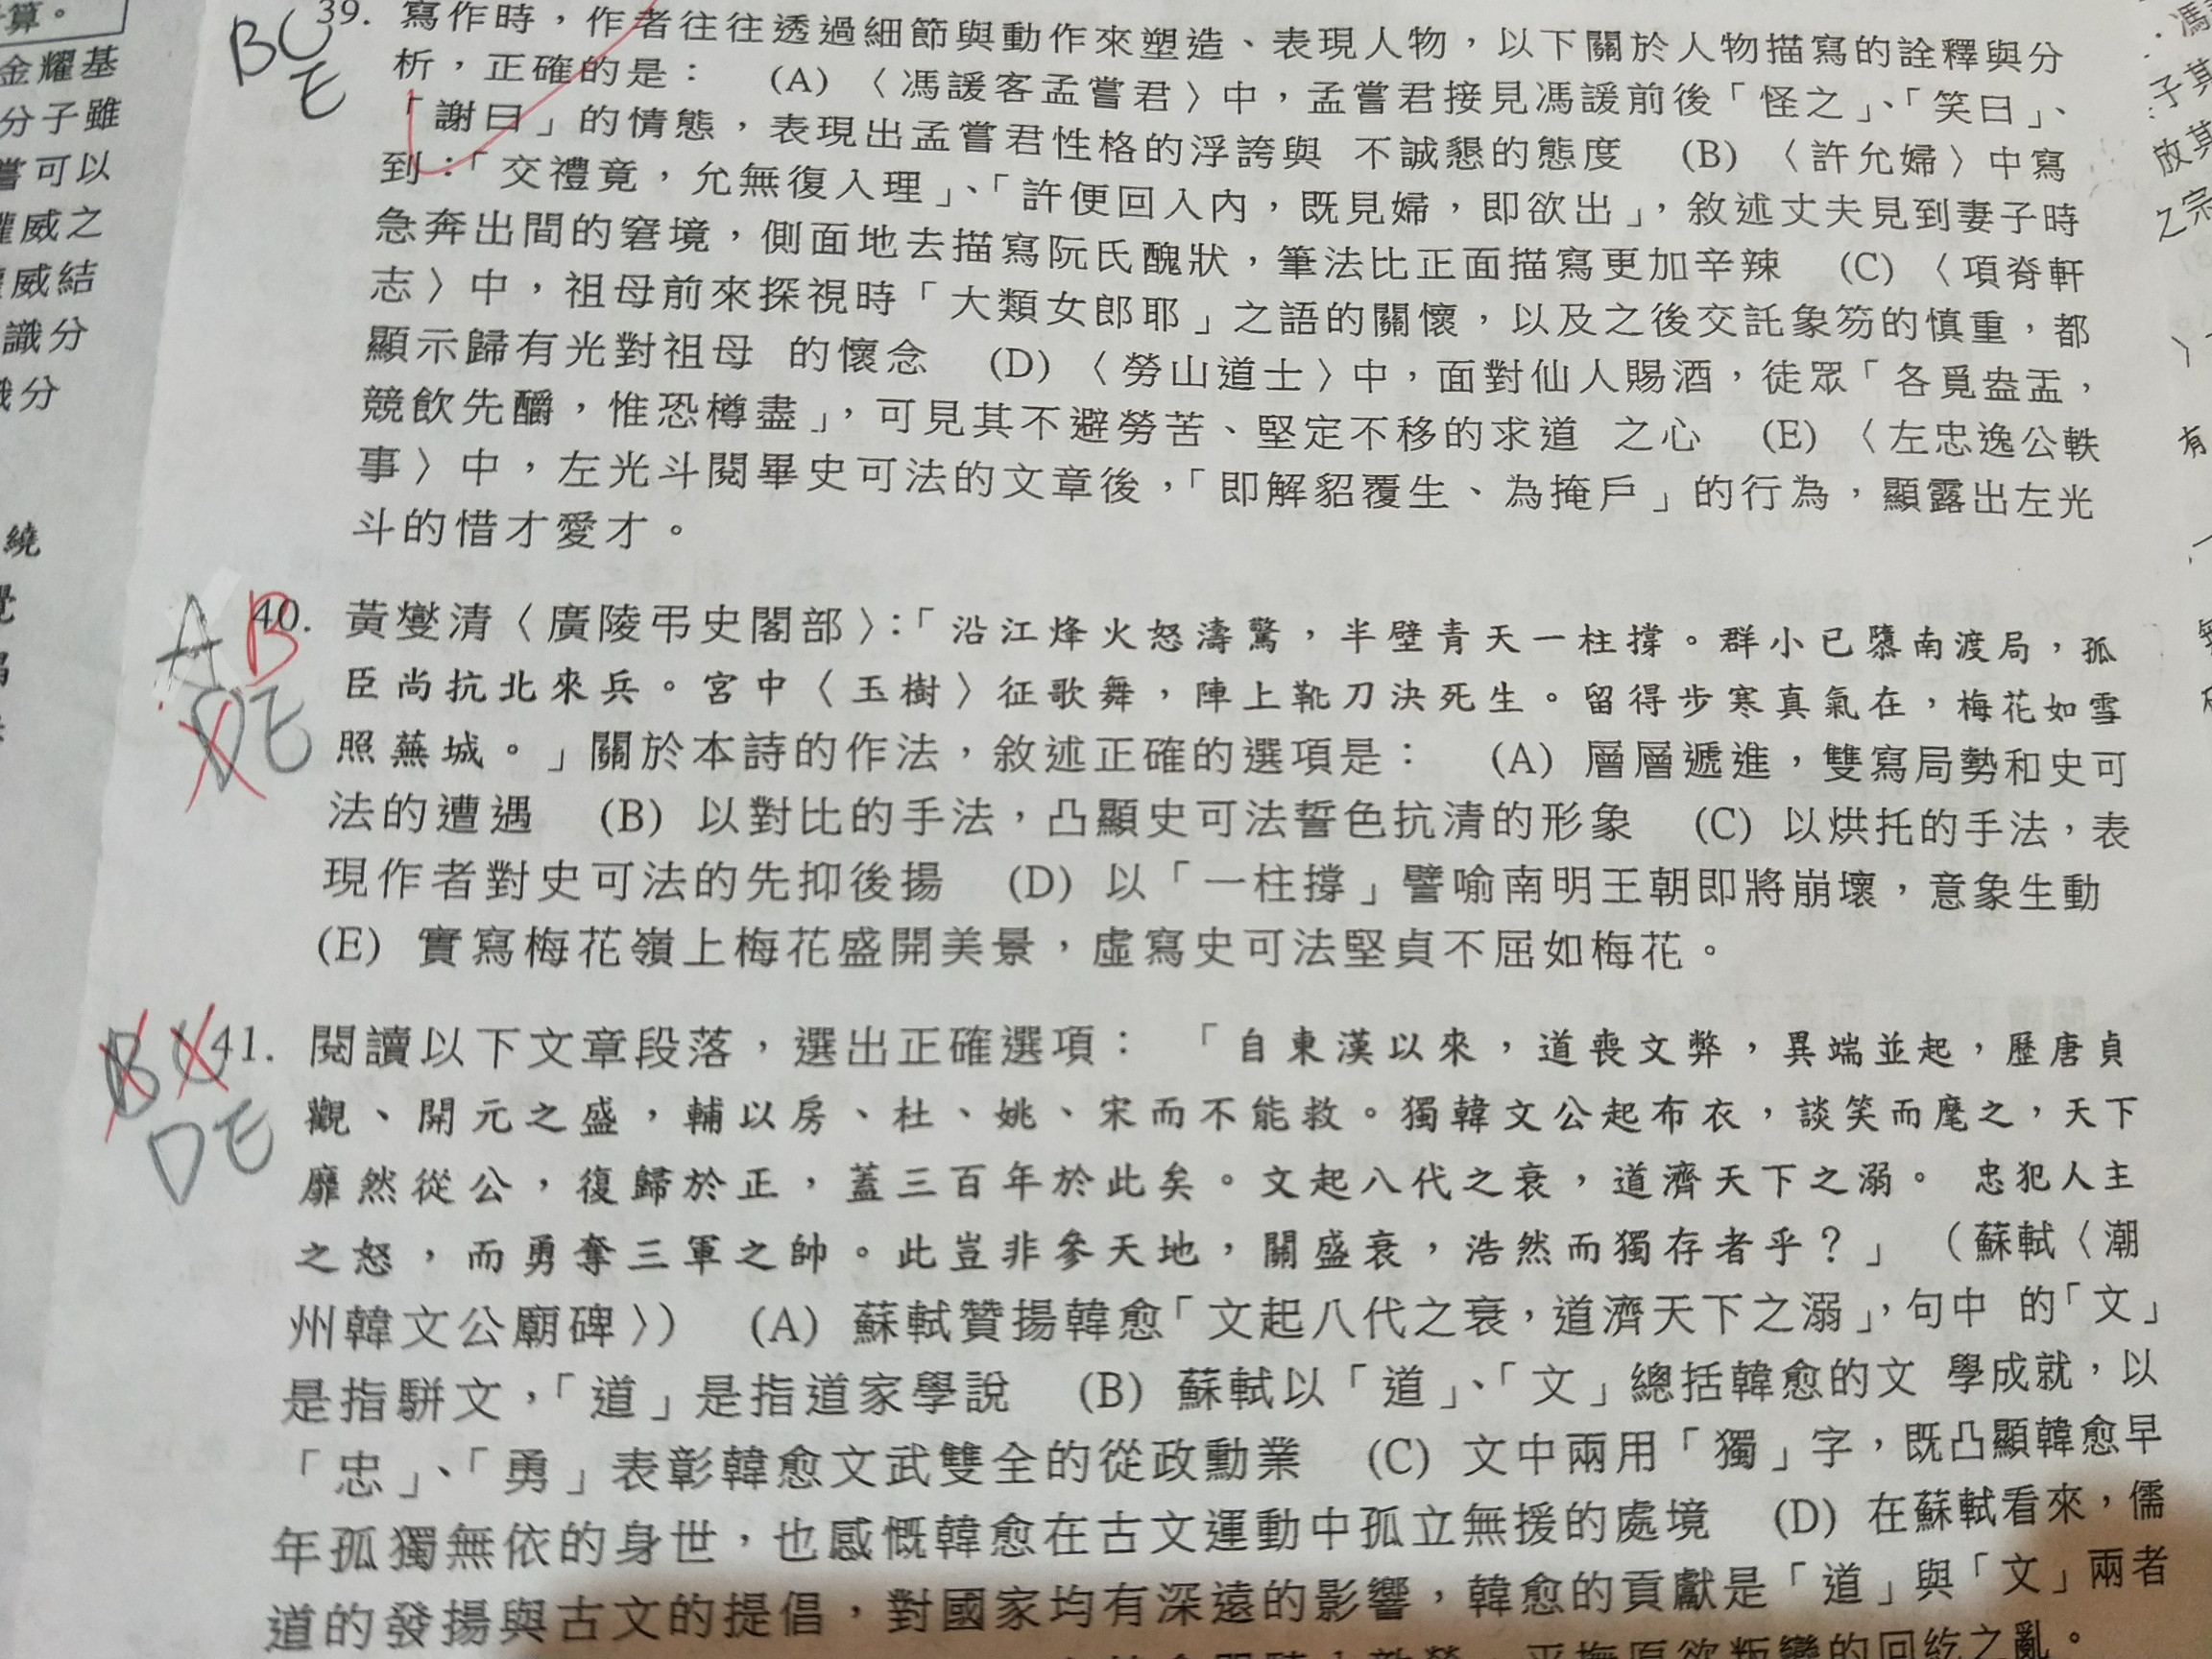 算。
金耀基
分子雖
嘗可以
權威之
威結
識分
識分
繞
BC
E
39. 寫作時，作者往往透過細節與動作來塑造、表現人物，以下關於人物描寫的詮釋與分
析，正確的是： (A) 〈馮諼客孟嘗君〉中，孟嘗君接見馮諼前後「怪之」、「笑曰」、
「謝曰」的情態，表現出孟嘗君性格的浮誇與 不誠懇的態度 (B) 〈許允婦〉中寫
到：「交禮竟，允無復入理」、「許便回入內，既見婦，即欲出」，敘述丈夫見到妻子時
急奔出間的窘境，側面地去描寫阮氏醜狀，筆法比正面描寫更加辛辣 (C) 〈項脊軒
志〉中，祖母前來探視時「大類女郎耶」之語的關懷，以及之後交託象笏的慎重，都
顯示歸有光對祖母 的懷念 (D) 〈勞山道士〉中，面對仙人賜酒，徒眾「各覓盎盂，
競飲先釂，惟恐樽盡」，可見其不避勞苦、堅定不移的求道 之心 (E) 〈左忠逸公軼
事〉中，左光斗閱畢史可法的文章後，「即解貂覆生、為掩戶」的行為，顯露出左光
斗的惜才愛才。
A B
DE
40. 黃燮清〈廣陵弔史閣部〉：「沿江烽火怒濤驚，半壁青天一柱撐。群小已隳南渡局，孤
臣尚抗北來兵。宮中〈玉樹〉征歌舞，陣上靴刀決死生。留得步寒真氣在，梅花如雪
照蕪城。」關於本詩的作法，敘述正確的選項是： (A) 層層遞進，雙寫局勢和史可
法的遭遇 (B) 以對比的手法，凸顯史可法誓色抗清的形象 (C) 以烘托的手法，表
現作者對史可法的先抑後揚 (D) 以「一柱撐」譬喻南明王朝即將崩壞，意象生動
(E) 實寫梅花嶺上梅花盛開美景，虛寫史可法堅貞不屈如梅花。
BC
DE
41. 閱讀以下文章段落，選出正確選項： 「自東漢以來，道喪文弊，異端並起，歷唐貞
觀、開元之盛，輔以房、杜、姚、宋而不能救。獨韓文公起布衣，談笑而麾之，天下
靡然從公，復歸於正，蓋三百年於此矣。文起八代之衰，道濟天下之溺。 忠犯人主
之怒，而勇奪三軍之帥。此豈非參天地，關盛衰，浩然而獨存者乎？」 （蘇軾〈潮
州韓文公廟碑〉） (A) 蘇軾贊揚韓愈「文起八代之衰，道濟天下之溺」，句中 的「文」
是指駢文，「道」是指道家學說 (B) 蘇軾以「道」、「文」總括韓愈的文 學成就，以
「忠」、「勇」表彰韓愈文武雙全的從政勳業 (C) 文中兩用「獨」字，既凸顯韓愈早
年孤獨無依的身世，也感慨韓愈在古文運動中孤立無援的處境 (D) 在蘇軾看來，儒
道的發揚與古文的提倡，對國家均有深遠的影響，韓愈的貢獻是「道」與「文」兩者
平撫原欲叛變的回紇之亂。
子其
放其
之宗
有